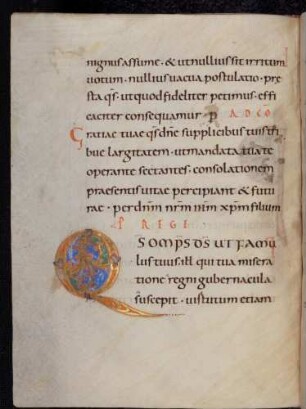 nignus assume · & ut nullius sit irritum
uotum · nullius uacua postulatio · pre
sta qs · ut quod fideliter petimus · effi
caciter consequamur · p̄ AD CŌ
Gratiae tuae qs dn̄e supplicibus tuis tri
bue largitatem · ut mandata tua te
operante sectantes · consolationem
praesentis uitae percipiant & futu
rae · per dn̄m nr̄m ih̄m xp̄m filium
P̄ REGE
QS OMPS DS UT FAMU
lus tuus · ill̄ qui tua misera
tione regni gubernacula
suscepit · uirtutum etiam